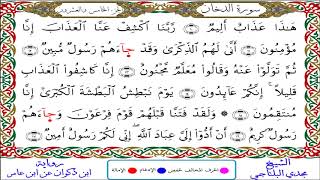 سورة الدخان
الجزء الخامس والعشرون
هَٰذَا عَذَابٌ أَلِيمٌ رَبَّنَا اكْشِفْ عَنَّا الْعَذَابَ إِنَّا
مُؤْمِنُونَ أَنَّىٰ لَهُمُ الذِّكْرَىٰ وَقَدْ جَاءَهُمْ رَسُولٌ مُبِينٌ
ثُمَّ تَوَلَّوْا عَنْهُ وَقَالُوا مُعَلَّمٌ مَجْنُونٌ إِنَّا كَاشِفُوا الْعَذَابِ
قَلِيلًا إِنَّكُمْ عَائِدُونَ يَوْمَ نَبْطِشُ الْبَطْشَةَ الْكُبْرَىٰ إِنَّا
مُنْتَقِمُونَ وَلَقَدْ فَتَنَّا قَبْلَهُمْ قَوْمَ فِرْعَوْنَ وَجَاءَهُمْ
رَسُولٌ كَرِيمٌ أَنْ أَدُّوا إِلَيَّ عِبَادَ اللَّهِ إِنِّي لَكُمْ رَسُولٌ أَمِينٌ
الشيخ
مجدي البلتاجي
الإدغام
الإمالة
رواية
ابن ذكوان عن ابن عامر